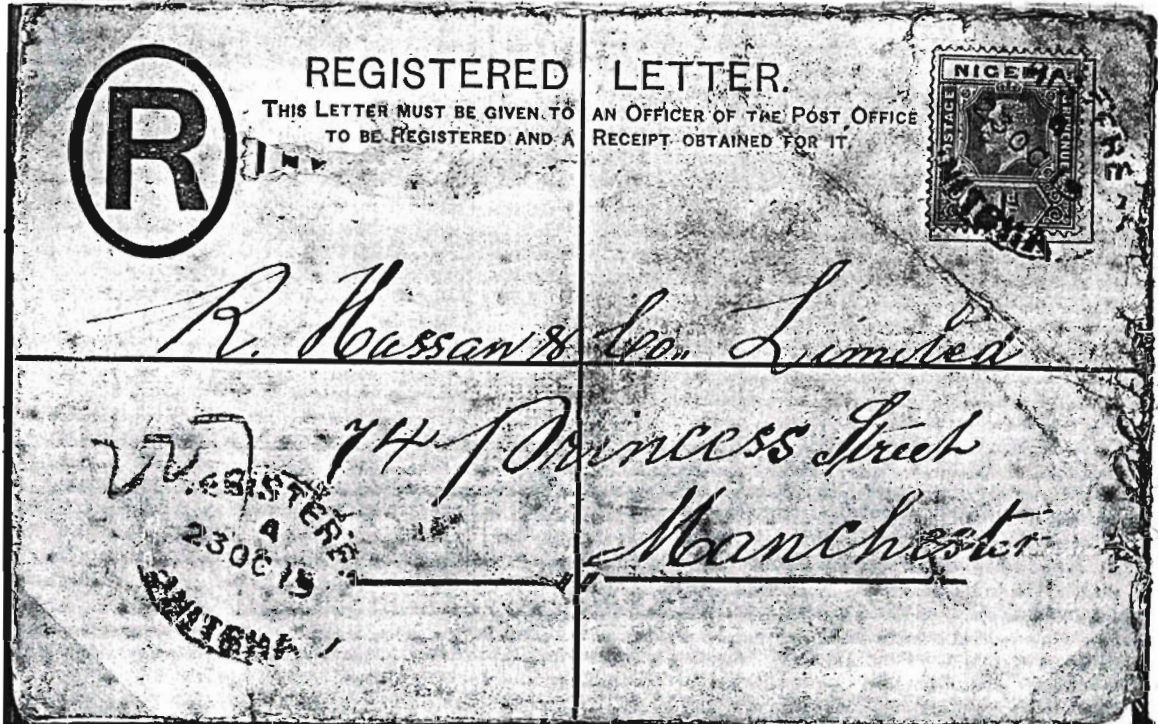 R
REGISTERED LETTER.
THIS LETTER MUST BE GIVEN TO AN OFFICER OF THE POST OFFICE
TO BE REGISTERED AND A RECEIPT OBTAINED FOR IT.
NIGERIA
POSTAGE
R. Hassan & Co. Limited
74 Princess Street
Manchester
REGISTERED
A
23 OC 15
ONITSHA